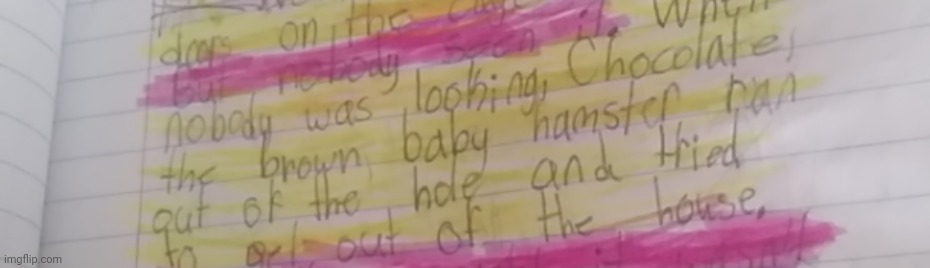 doors on the cage
but nobody seen it. When
nobody was looking, Chocolate,
the brown baby hamster ran
out of the hole and tried
to get out of the house.
imgflip.com